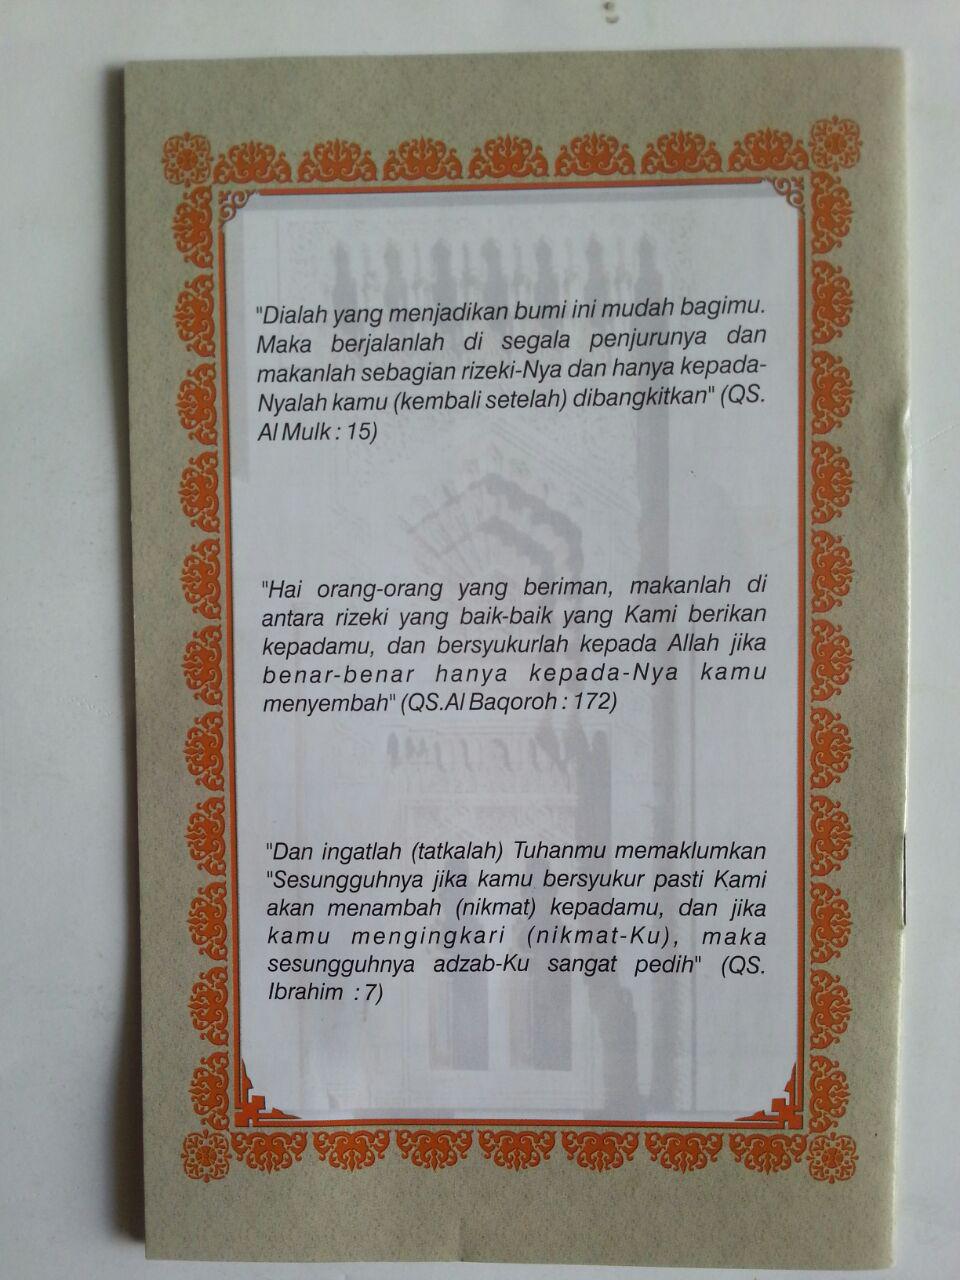 "Dialah yang menjadikan bumi ini mudah bagimu.
Maka berjalanlah di segala penjurunya dan
makanlah sebagian rizeki-Nya dan hanya kepada-
Nyalah kamu (kembali setelah) dibangkitkan" (QS.
Al Mulk : 15)
"Hai orang-orang yang beriman, makanlah di
antara rizeki yang baik-baik yang Kami berikan
kepadamu, dan bersyukurlah kepada Allah jika
benar-benar hanya kepada-Nya kamu
menyembah" (QS.Al Baqoroh : 172)
"Dan ingatlah (tatkalah) Tuhanmu memaklumkan
"Sesungguhnya jika kamu bersyukur pasti Kami
akan menambah (nikmat) kepadamu, dan jika
kamu mengingkari (nikmat-Ku), maka
sesungguhnya adzab-Ku sangat pedih" (QS.
Ibrahim : 7)